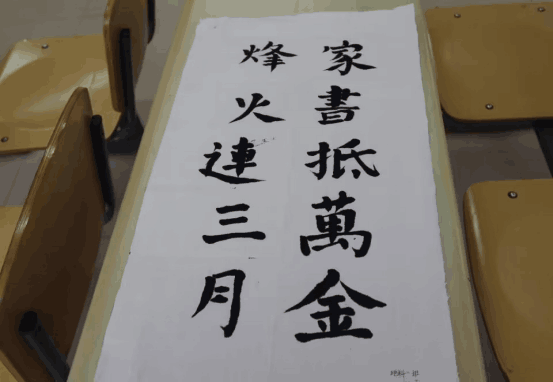 家書抵萬金
烽火連三月